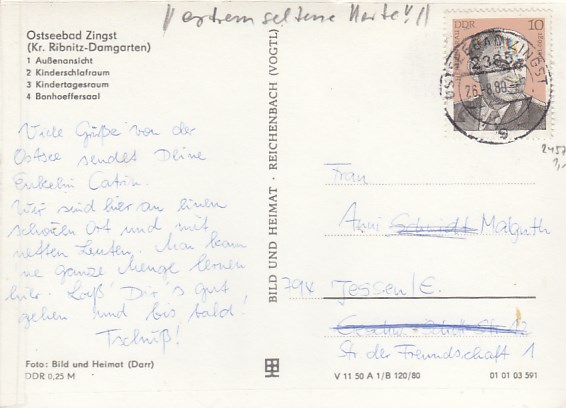 extrem seltene Marke!!
Ostseebad Zingst
(Kr. Ribnitz-Damgarten)
1 Außenansicht
2 Kinderschlafraum
3 Kindertagesraum
4 Bonhoeffersaal
Viele Grüße von der
Ostsee sendet Deine
Enkelin Catrin.
Wir sind hier an einen
schönen Ort und mit
netten Leuten. Man kann
'ne ganze Menge lernen
hier. Laß' Dir's gut
gehen und bis bald!
Tschüß!
Foto: Bild und Heimat (Darr)
DDR 0,25 M
BILD UND HEIMAT · REICHENBACH (VOGTL)
DDR 10
OSTSEEBAD ZINGST
2385
26.-8.80
2457
Frau
Anni Schmidt Malguth
794 Jessen/E.
Str der Freundschaft 1
V 11 50 A 1/B 120/80
01 01 03 391